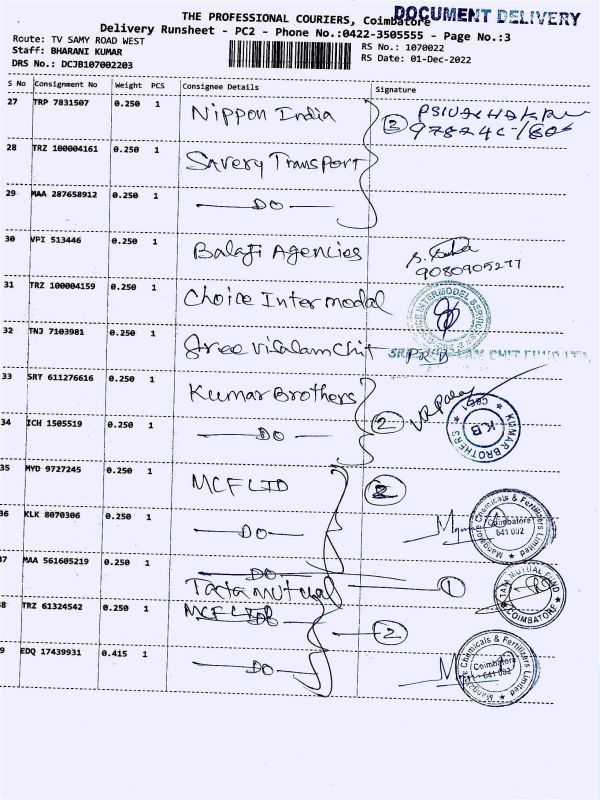 DOCUMENT DELIVERY
THE PROFESSIONAL COURIERS, Coimbatore
Delivery Runsheet - PC2 - Phone No.:0422-3505555 - Page No.:3
Route: TV SAMY ROAD WEST
RS No.: 1070022
Staff: BHARANI KUMAR
RS Date: 01-Dec-2022
DRS No.: DCJB107002203
S No Consignment No Weight PCS Consignee Details Signature
27 TRP 7831507 0.250 1 Nippon India
2
28 TRZ 100004161 0.250 1 Savery Transport
29 MAA 287658912 0.250 1 DO
30 VPI 513446 0.250 1 Balaji Agencies
9080905277
31 TRZ 100004159 0.250 1 Choice Intermodal
32 TNJ 7103981 0.250 1 Sree Vilalam Chit
33 SRT 611276616 0.250 1 Kumar Brothers
2
KUMAR BROTHERS
K.B
34 ICH 1505519 0.250 1 DO
35 MYD 9727245 0.250 1 MCF LTD
2
36 KLK 8070306 0.250 1 DO
Mangalore Chemicals & Fertilizers Limited
Coimbatore
641 002
37 MAA 561605219 0.250 1 DO
Tata mutual
1
MUTUAL FUND
COIMBATORE
38 TRZ 61324542 0.250 1 MCF LTD
2
39 EDQ 17439931 0.415 1 DO
Mangalore Chemicals & Fertilizers Limited
Coimbatore
641 002